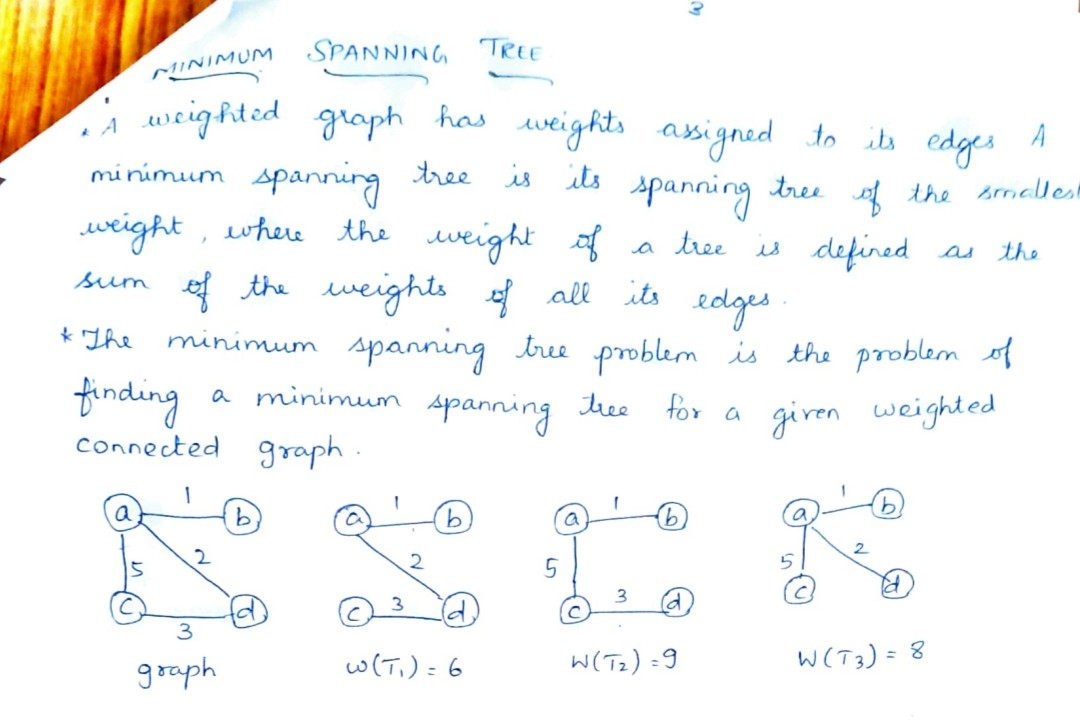 3
MINIMUM SPANNING TREE
* A weighted graph has weights assigned to its edges A
minimum spanning tree is its spanning tree of the smallest
weight, where the weight of a tree is defined as the
sum of the weights of all its edges.
* The minimum spanning tree problem is the problem of
finding a minimum spanning tree for a given weighted
connected graph.
a 1 b a 1 b a 1 b a 1 b
5 2 2 5 5 2
c 3 d c 3 d c 3 d c d
graph w(T₁) = 6 W(T₂) = 9 W(T₃) = 8